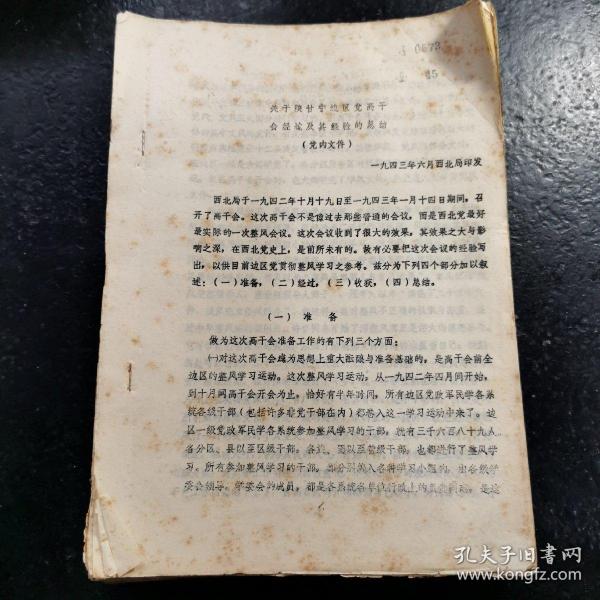 0573
85
关于陕甘宁边区党高干
会经验及其经验的总结
(党内文件)
一九四三年六月西北局印发
西北局于一九四二年十月十九日至一九四三年一月十四日期间，召
开了高干会。这次高干会不是像过去那些普通的会议，而是西北党最好
最实际的一次整风会议。这次会议收到了很大的效果，其效果之大与影
响之深，在西北党史上，是前所未有的。故有必要把这次会议的经验写
出，以供目前边区党贯彻整风学习之参考。兹分为下列四个部分加以叙
述：(一)准备，(二)经过，(三)收获，(四)总结。
(一) 准 备
做为这次高干会准备工作的有下列三个方面：
㈠对这次高干会成为思想上重大酝酿与准备基础的，是高干会前全
边区的整风学习运动。这次整风学习运动，从一九四二年四月间开始，
到十月间高干会开会为止，恰好有半年时间，所有边区党政军民学各系
统各级干部(包括许多非党干部在内)都卷入这一学习运动中来了。边
区一级党政军民学各系统参加整风学习的干部，就有三千六百八十九人
各分区、县以至区级干部，各旅、团以至营级干部，也都进行了整风学
习。所有参加整风学习的干部，都分别编入各种学习小组内，由各级学
委会领导。学委会的成员，都是各系统各单位行政上的负责同志，是这
孔夫子旧书网
www.kongfz.com